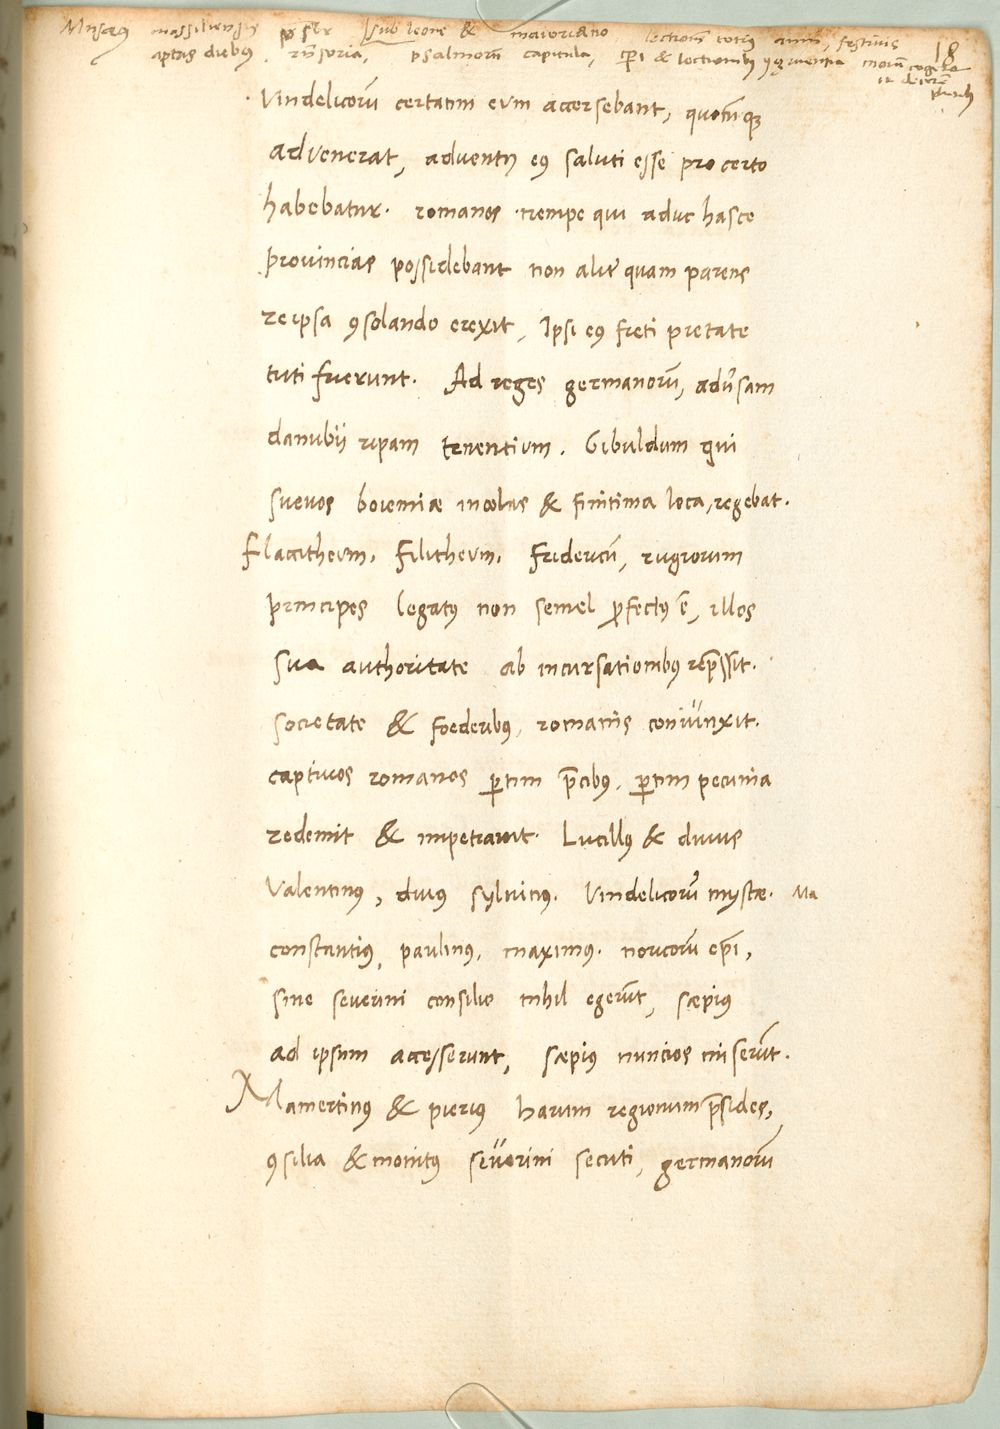 Musæus massiliensis psbr sub leone & maioriano lectiones totius anni, festivis
aptas diebus. rñsoria, psalmorũ capitula, tp̃i & lectionib9 9gruentia
18
Vindelicorũ certatim eum accersebant, quocũq3
advenerat, adventus ei9 saluti esse pro certo
habebatur. romanos nempe qui aduc hasce
provincias possidebant non alit̃ quam parens
re ipsa 9solando erexit, Ipsi ei9 freti pietate
tuti fuerunt. Ad reges germanorũ, adũsam
danubii ripam tenentium. Gibuldum qui
suevos boiemiæ incolas & finitima loca, regebat.
flaccitheum, filitheum, fridericũ, rugiorum
principes legatus non semel p̃fectus ẽ, illos
sua authoritate ab incursationibus rep̃ssit.
societate & foederibus, romanis coniunxit.
captivos romanos p̱tim p̃cibus, p̱tim pecunia
redemit & impetravit. Lucillus & divus
Valentinus, divus sylvinus. Vindelicorũ mystæ. Ma
constantius, paulinus, maximus. noricorũ ep̃i,
sine severini consilio nihil egerũt, sæpius
ad ipsum accesserunt, sæpius nuncios miserũt.
Mamertinus & pierius harum regionum p̃sides,
9silia & monitus severini secuti, germanorũ